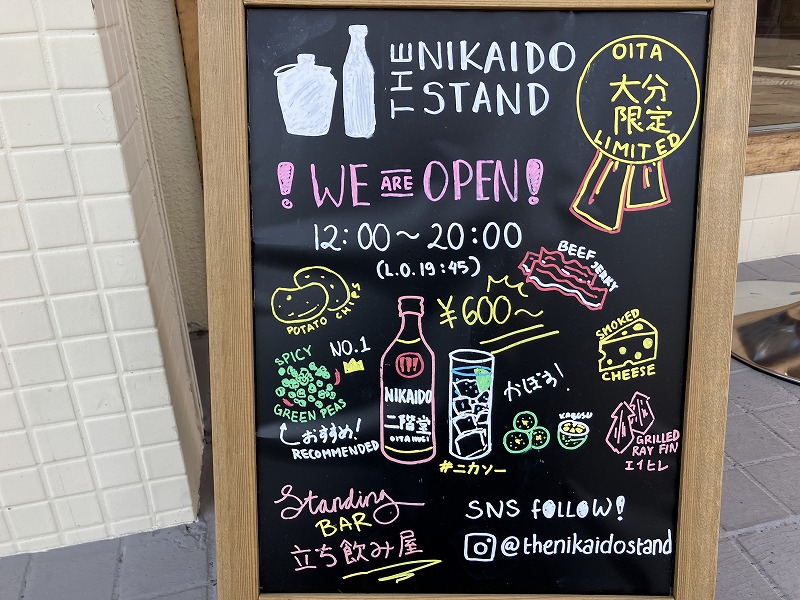 THE NIKAIDO
STAND
OITA
大分
限定
LIMITED
! WE ARE OPEN!
12:00〜20:00
(L.O.19:45)
BEEF JERKY
POTATO CHIPS
¥600〜
SMOKED
CHEESE
SPICY
GREEN PEAS
NO.1
おすすめ!
RECOMMENDED
NIKAIDO
二階堂
OITA MUGI
かぼす!
KABOSU
#ニカソー
GRILLED
RAY FIN
エイヒレ
Standing
BAR
立ち飲み屋
SNS FOLLOW!
@thenikaidostand